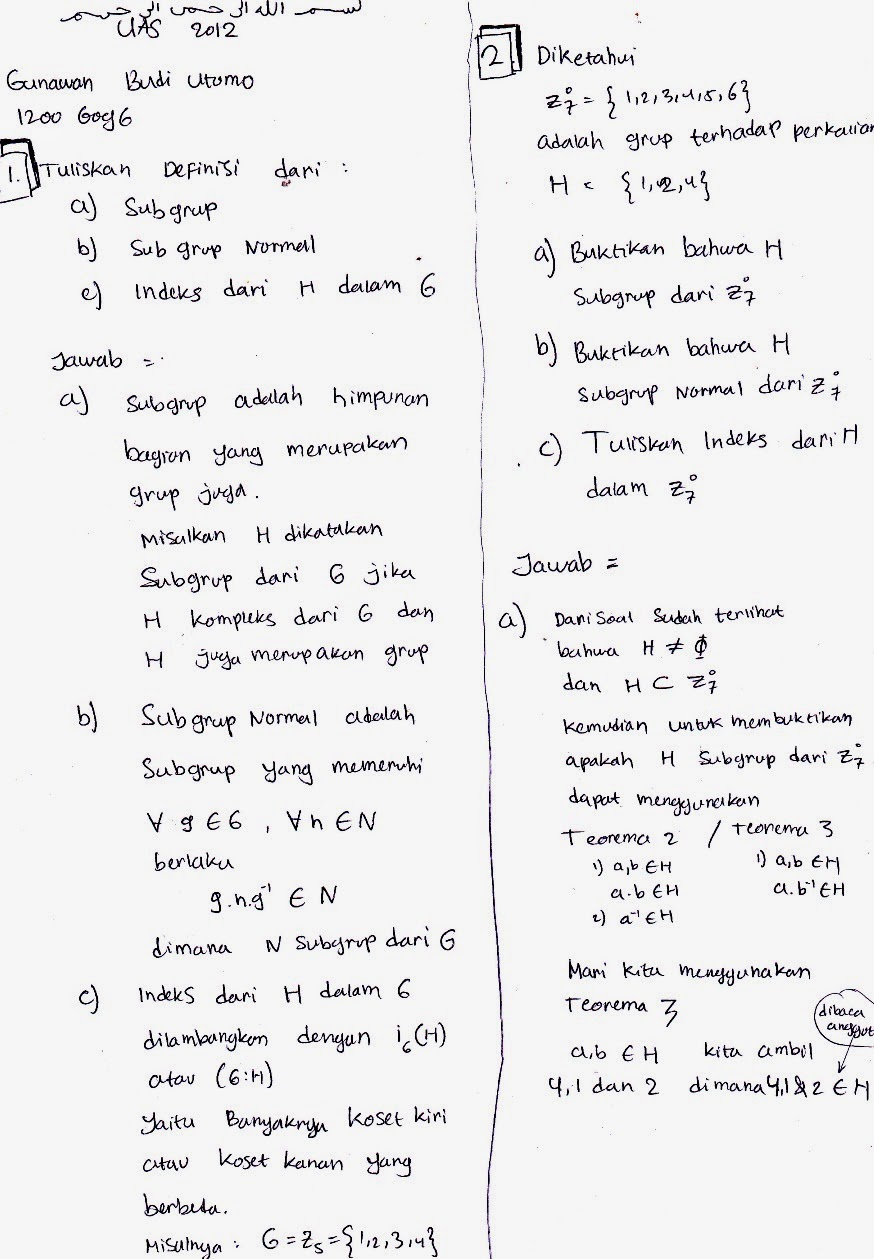 بسم الله الرحمن الرحيم
UAS 2012
Gunawan Budi Utomo
1200 6096
1. Tuliskan Definisi dari :
a) Subgrup
b) Sub grup Normal
c) Indeks dari H dalam G
Jawab =
a) Subgrup adalah himpunan
bagian yang merupakan
grup juga.
Misalkan H dikatakan
Subgrup dari G jika
H kompleks dari G dan
H juga merupakan grup
b) Subgrup Normal adalah
Subgrup yang memenuhi
∀ g ∈ G , ∀ n ∈ N
berlaku
g.n.g⁻¹ ∈ N
dimana N Subgrup dari G
c) Indeks dari H dalam G
dilambangkan dengan i_G(H)
atau (G:H)
Yaitu Banyaknya Koset kiri
atau Koset kanan yang
berbeda.
Misalnya : G = Z₅ = {1,2,3,4}
2. Diketahui
Z₇° = {1,2,3,4,5,6}
adalah grup terhadap perkalian
H = {1,2,4}
a) Buktikan bahwa H
Subgrup dari Z₇°
b) Buktikan bahwa H
Subgrup Normal dari Z₇°
c) Tuliskan Indeks dari H
dalam Z₇°
Jawab =
a) Dari Soal Sudah terlihat
bahwa H ≠ Φ
dan H ⊂ Z₇°
Kemudian untuk membuktikan
apakah H Subgrup dari Z₇°
dapat menggunakan
Teorema 2 / teorema 3
1) a,b ∈ H 1) a,b ∈ H
a.b ∈ H a.b⁻¹ ∈ H
2) a⁻¹ ∈ H
Mari kita menggunakan
Teorema 3
dibaca
anggot
a,b ∈ H kita ambil
4,1 dan 2 dimana 4,1 & 2 ∈ H